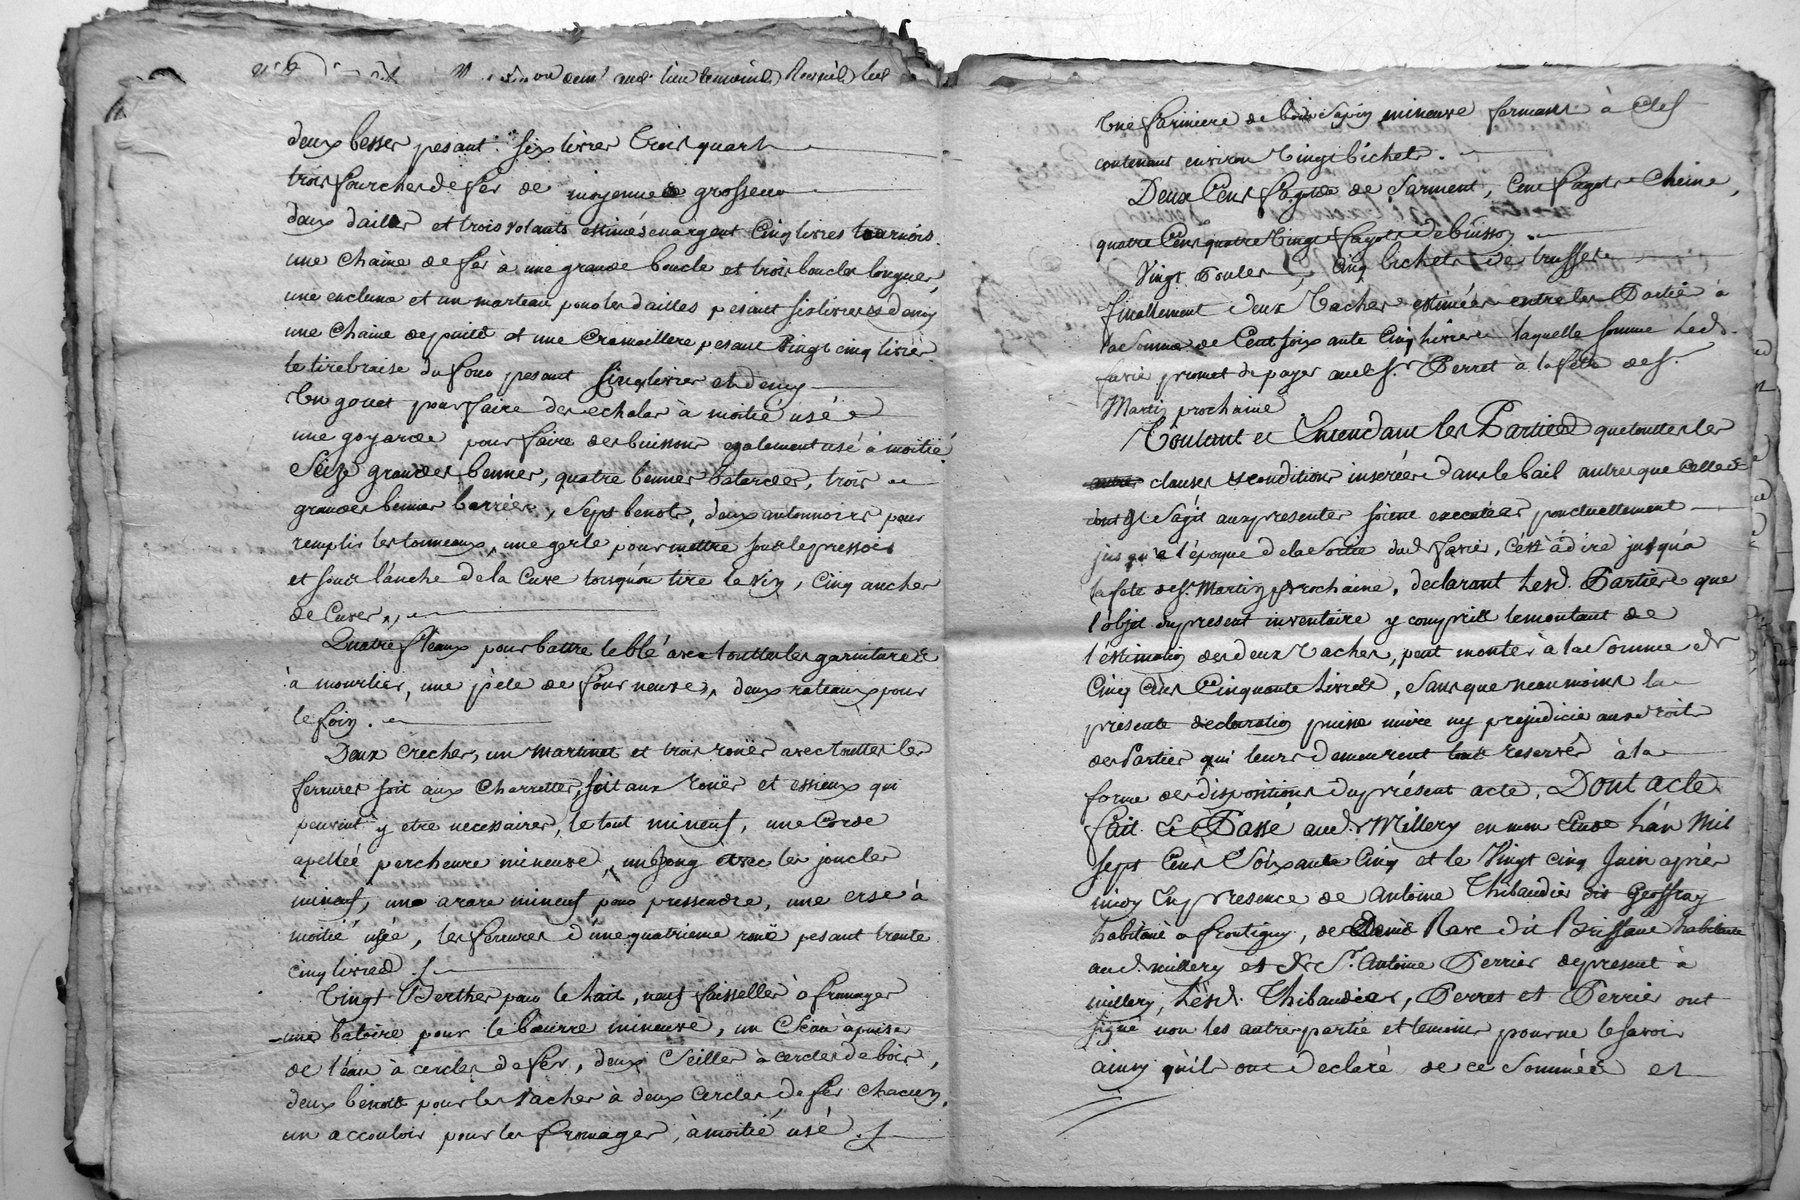 deux besses pesant six livres trois quart
trois fourches de fer de moyenne grosseur
deux dailles et trois volants estimés en argent Cinq livres tournois.
une chaine de fer à une grande boucle et trois boucles longues,
une enclume et un marteau pour les dailles pesant six livres & demy
une chaine de puits et une Cramaillere pesant Vingt cinq livres
le tirebraise du four pesant Cinq livres et demy
Un gouet pour faire des echalas à moitié usé
une goyarde pour faire des buissons egalement usé à moitié
Seize grandes bennes, quatre bennes batardes, trois
grandes bennes barrées, Sept benots, deux antonnoirs pour
remplir les tonneaux, une gerle pour mettre sous le pressoir
et sous l'anche de la Cuve lorsqu'on tire le vin, Cinq anches
de Cuves,,
Quatre fleaux pour battre le blé avec touttes les garnitures
à mourlier, une pele de four neuve, deux rateaux pour
le foin.
Deux creches, un martinet et trois rouës avec touttes les
ferrures soit aux Charrettes, soit aux rouës et essieux qui
peuvent y etre necessaires, le tout mineuf, une Corde
apellée percheure mineuve, un Joug avec les joucles
mineuf, une arare mineuf pour pressendre, une erse à
moitié usée, les ferrures d'une quatrieme rouë pesant trente
cinq livres
Vingt Berthes pour le lait, neuf faisselles à fromages
une batoire pour le beurre mineuve, un Seau à puiser
de l'eau à cercles de fer, deux Seilles à cercles de bois,
deux benots pour les vaches à deux Cercles de fer chacun,
un accouloir pour les fromages, à moitié usé.
Une fariniere de bois Sapin mineuve fermant à Clef
contenant environ Vingt bichets.
Deux Cent fagots de Sarment, Cent fagots Cheine,
quatre Cent quatre Vingt fagots de buisson.
Vingt Poules, Cinq bichets de truffes
finallement deux Vaches estimées entre les Parties à
la Somme de Cent soixante Cinq livres laquelle somme led.
favre promet de payer aud. Sr. Perret à la fete de St.
Martin prochaine
Voulant et Entendant les Parties que touttes les
clauses & conditions inserées dans le bail autres que Celles
dont il S'agit aux presentes soient executées ponctuellement
jusqu'a l'epoque de la Sortie dud. favre, C'est à dire jusqu'a
la fete de St. Martin prochaine, declarant Lesd. Parties que
l'objet du present inventaire y compris le montant de
l'estimation des deux Vaches, peut monter à la Somme de
Cinq Cent Cinquante Livres, Sans que neanmoins la
presente declaration puisse nuire ny prejudicier aux droits
des Parties qui leurs demeurent tous reservés à la
forme des dispositions du présent acte, Dont acte
Fait & Passé aud. Millery en mon Etude L'an Mil
Sept Cent Soixante Cinq et le Vingt cinq Juin après
midy En presence de Antoine Thibaudier dit Geoffray
habitant à frontigny, de Denis Rave dit Brissane habitant
aud. millery et de Sr. Antoine Perrier de present à
millery, Lesd. Thibaudier, Perret et Perrier ont
signé non les autres partie et temoins pour ne le savoir
ainsy qu'ils ont declaré de ce Sommées et